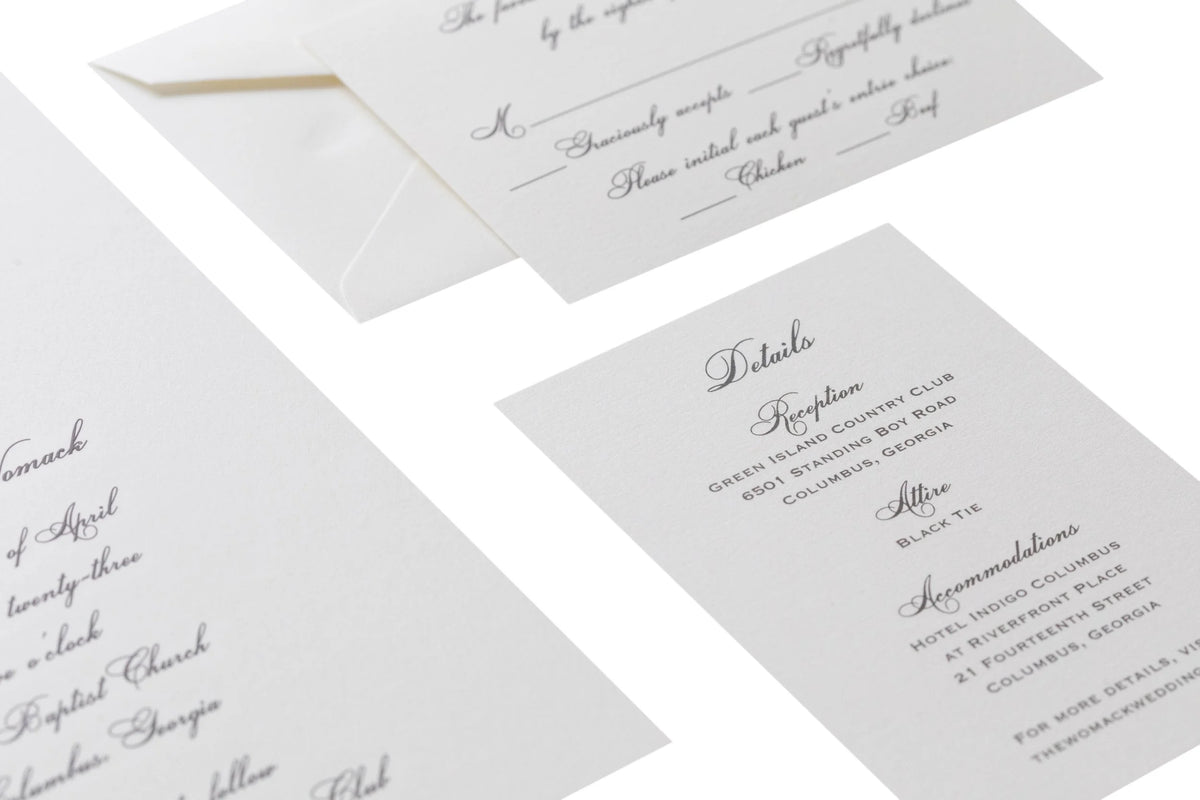 The
by the
M
Graciously accepts Regretfully declines
Please initial each guest's entrée choice:
Chicken Beef
Details
Reception
Green Island Country Club
6501 Standing Boy Road
Columbus, Georgia
Attire
Black Tie
Accommodations
Hotel Indigo Columbus
at Riverfront Place
21 Fourteenth Street
Columbus, Georgia
For more details, vis
thewomackwedding
omack
of April
twenty-three
o'clock
Baptist Church
Columbus, Georgia
follow
Club